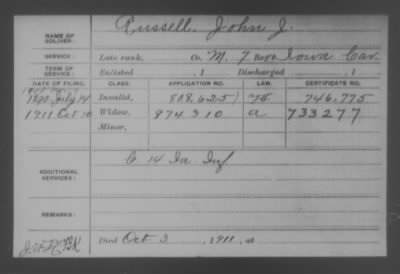 NAME OF SOLDIER: Russell, John J.
SERVICE: Late rank, Co. M, 7 Reg't Iowa Cav.
TERM OF SERVICE: Enlisted , 1 Discharged , 1
DATE OF FILING. CLASS. APPLICATION NO. LAW. CERTIFICATE NO.
1890 July 14 Invalid, 808,625 746,775
1911 Oct 10 Widow, 974310 a 733277
Minor,
C 14 Ia Inf
ADDITIONAL SERVICES:
REMARKS:
Died Oct 3, 1911, at